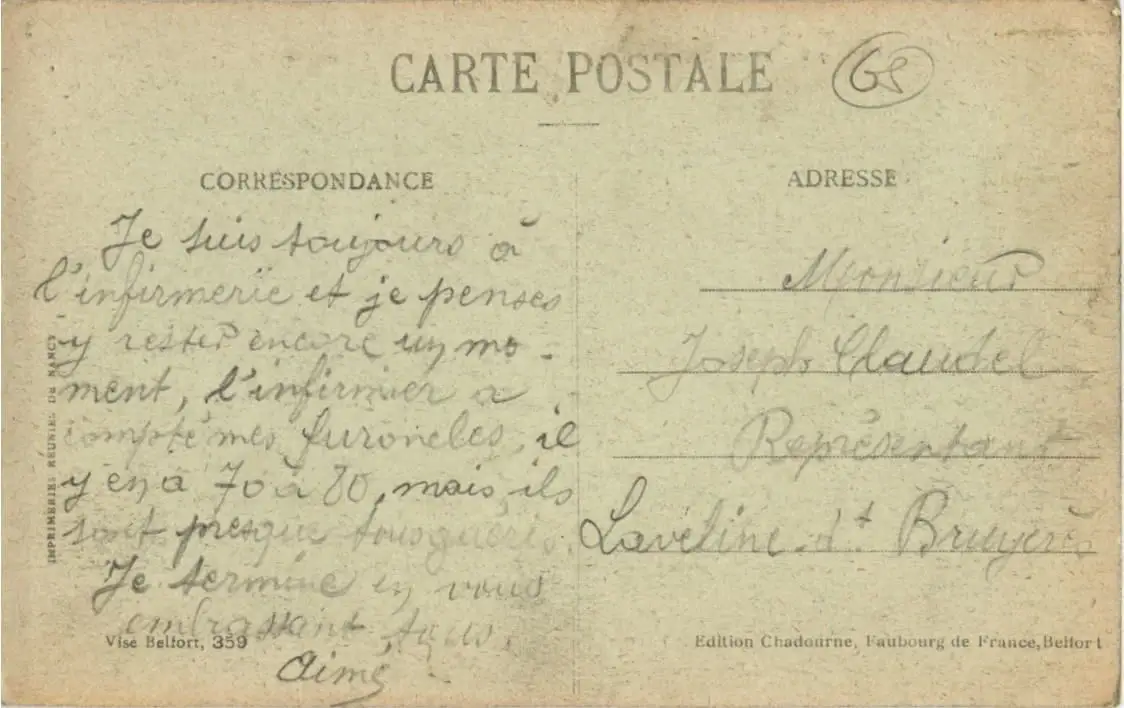 CARTE POSTALE
68
CORRESPONDANCE
Je suis toujours à
l'infirmerie et je penses
y rester encore un mo-
ment, l'infirmier a
compté mes furoncles, il
y en a 70 à 80, mais ils
sont presque tous guéris.
Je termine en vous
embrassant tous.
Aimé
ADRESSE
Monsieur
Joseph Claudel
Représentant
Laveline-dt Bruyères
IMPRIMERIES RÉUNIES DE NANCY
Visé Belfort, 359
Edition Chadourne, Faubourg de France, Belfort